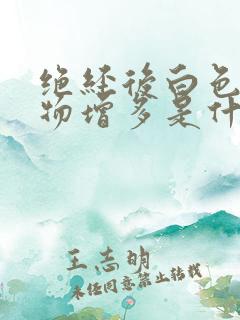 绝经后白色
物增多是什
王志明
未经同意禁止转载